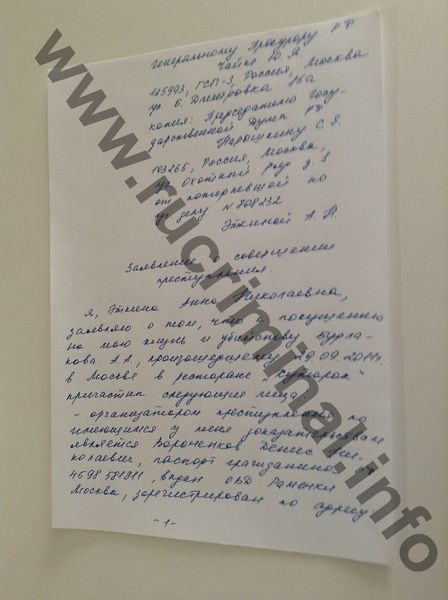 Генеральному Прокурору РФ
Чайке Ю. Я.
125993, ГСП-3, Россия, Москва
ул. Б. Дмитровка 15а
копия: Председателю Госу-
дарственной Думы РФ
Нарышкину С. Е.
103265, Россия, Москва,
ул. Охотный ряд д. 1
от потерпевшей по
уг. делу N 708232
Эткиной А. Н.
Заявление о совершении
преступления.
Я, Эткина Анна Николаевна,
заявляю о том, что к покушению
на мою жизнь и убийству Бурла-
кова А.А., произошедшему 29.09.2011г.
в Москве в ресторане "Хуторок"
причастны следующие лица:
- организатором преступления по
имеющимся у меня доказательствам
является Вороненков Денис Ни-
колаевич, паспорт гражданина РФ
4598 581811, выдан ОВД Раменки
Москва, зарегистрирован по адресу:
-1-
www.rucriminal.info